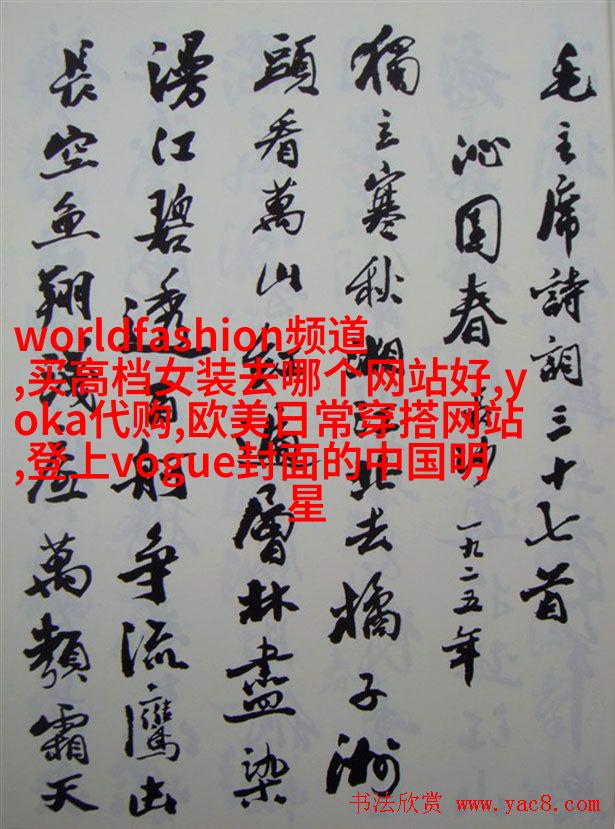 毛主席詩詞三十七首
沁园春 長沙 一九二五年
獨立寒秋湘江北去橘子洲
頭看萬山紅遍層林盡染
漫江碧透百舸争流鷹击
長空魚翔淺底萬類霜天
worldfashion频道
,买高档女装去哪个网站好,y
oka代购,欧美日常穿搭网站
,登上vogue封面的中国明
星
书法欣赏 www.yac8.com